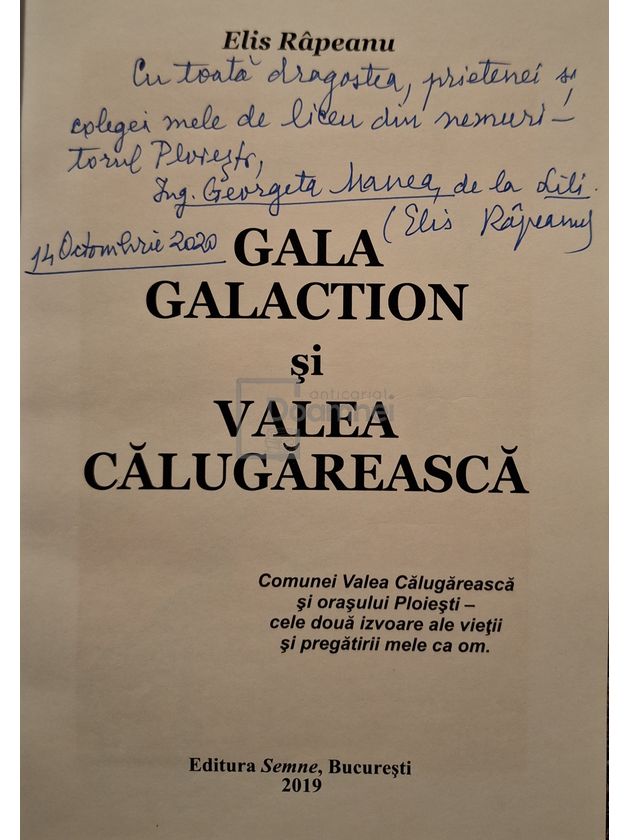 Elis Râpeanu
Cu toată dragostea, prietenei și
colegei mele de liceu din nemuri-
torul Ploiești,
Ing. Georgeta Manea, de la Lili.
(Elis Râpeanu)
14 Octombrie 2020
GALA
GALACTION
şi
VALEA
CĂLUGĂREASCĂ
anticariat
Doamnei
Comunei Valea Călugărească
şi oraşului Ploieşti –
cele două izvoare ale vieţii
şi pregătirii mele ca om.
Editura Semne, Bucureşti
2019